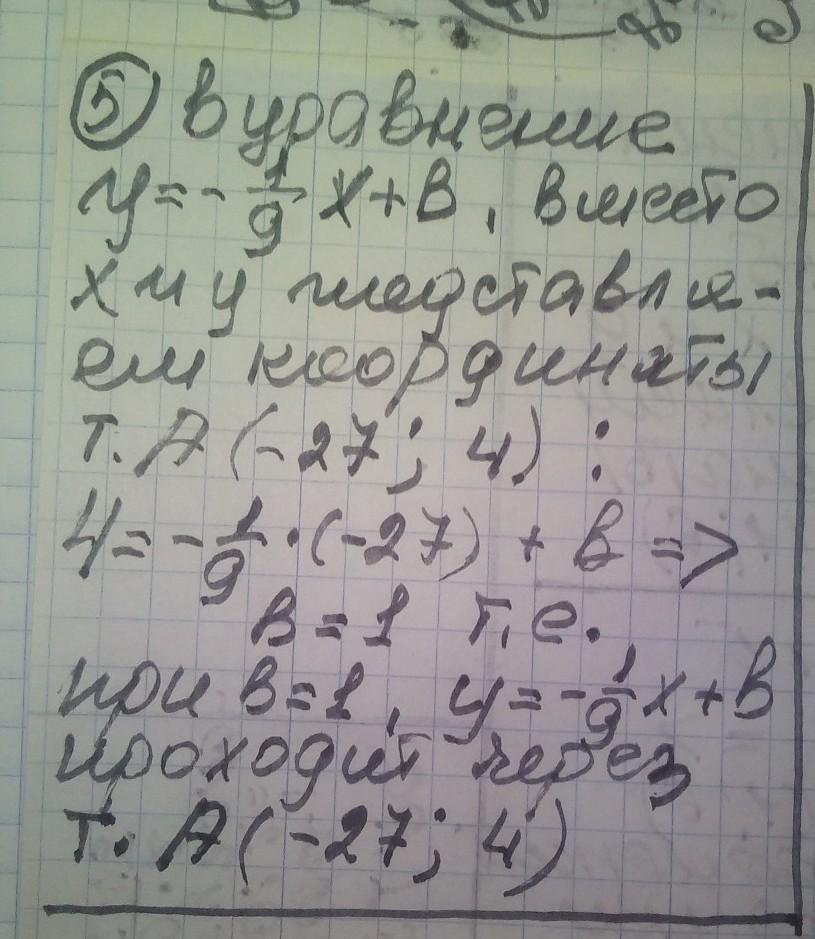 ⑤ в уравнение
y=-1/9 x+в, вместо
x и y подставля-
ем координаты
т. A (-27; 4) :
4=-1/9·(-27) + в =>
в=1 т.е.
при в=1, y=-1/9x+в
проходит через
т. A(-27; 4)